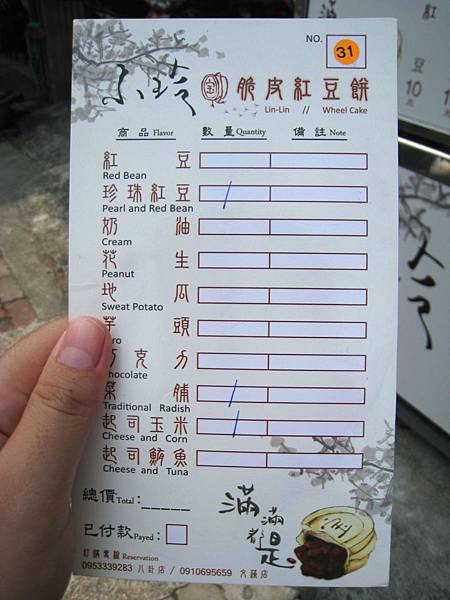 NO. 31
小玲 脆皮紅豆餅
Lin-Lin // Wheel Cake
商品 Flavor 數量 Quantity 備註 Note
紅豆
Red Bean
珍珠紅豆 /
Pearl and Red Bean
奶油
Cream
花生
Peanut
地瓜
Sweat Potato
芋頭
ro
巧克力
Chocolate
菜脯 /
Traditional Radish
起司玉米 /
Cheese and Corn
起司鮪魚
Cheese and Tuna
總價 Total :_____
已付款 Payed :
訂購電話 Reservation
0953339283 八卦店 / 0910695659 文蹟店
滿滿都是
紅
豆
10
元